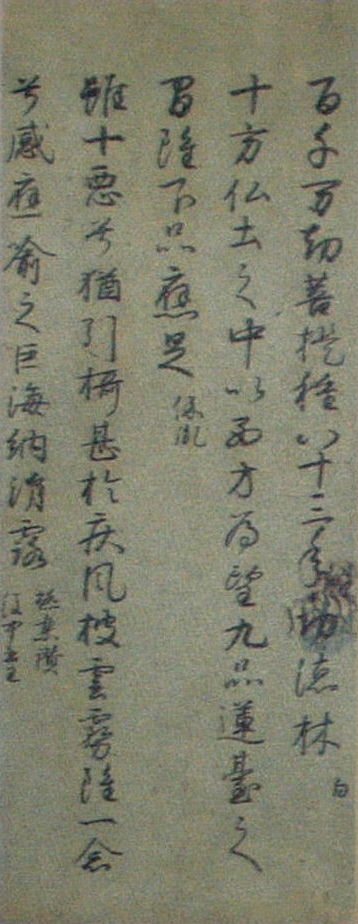 百千万劫菩提種八十三年功徳林 白
十方仏土之中以西方為望九品蓮臺之
間雖下品應足 保胤
雖十悪兮猶引摂甚於疾風披雲霧雖一念
兮感應喩之巨海納涓露
後中書王